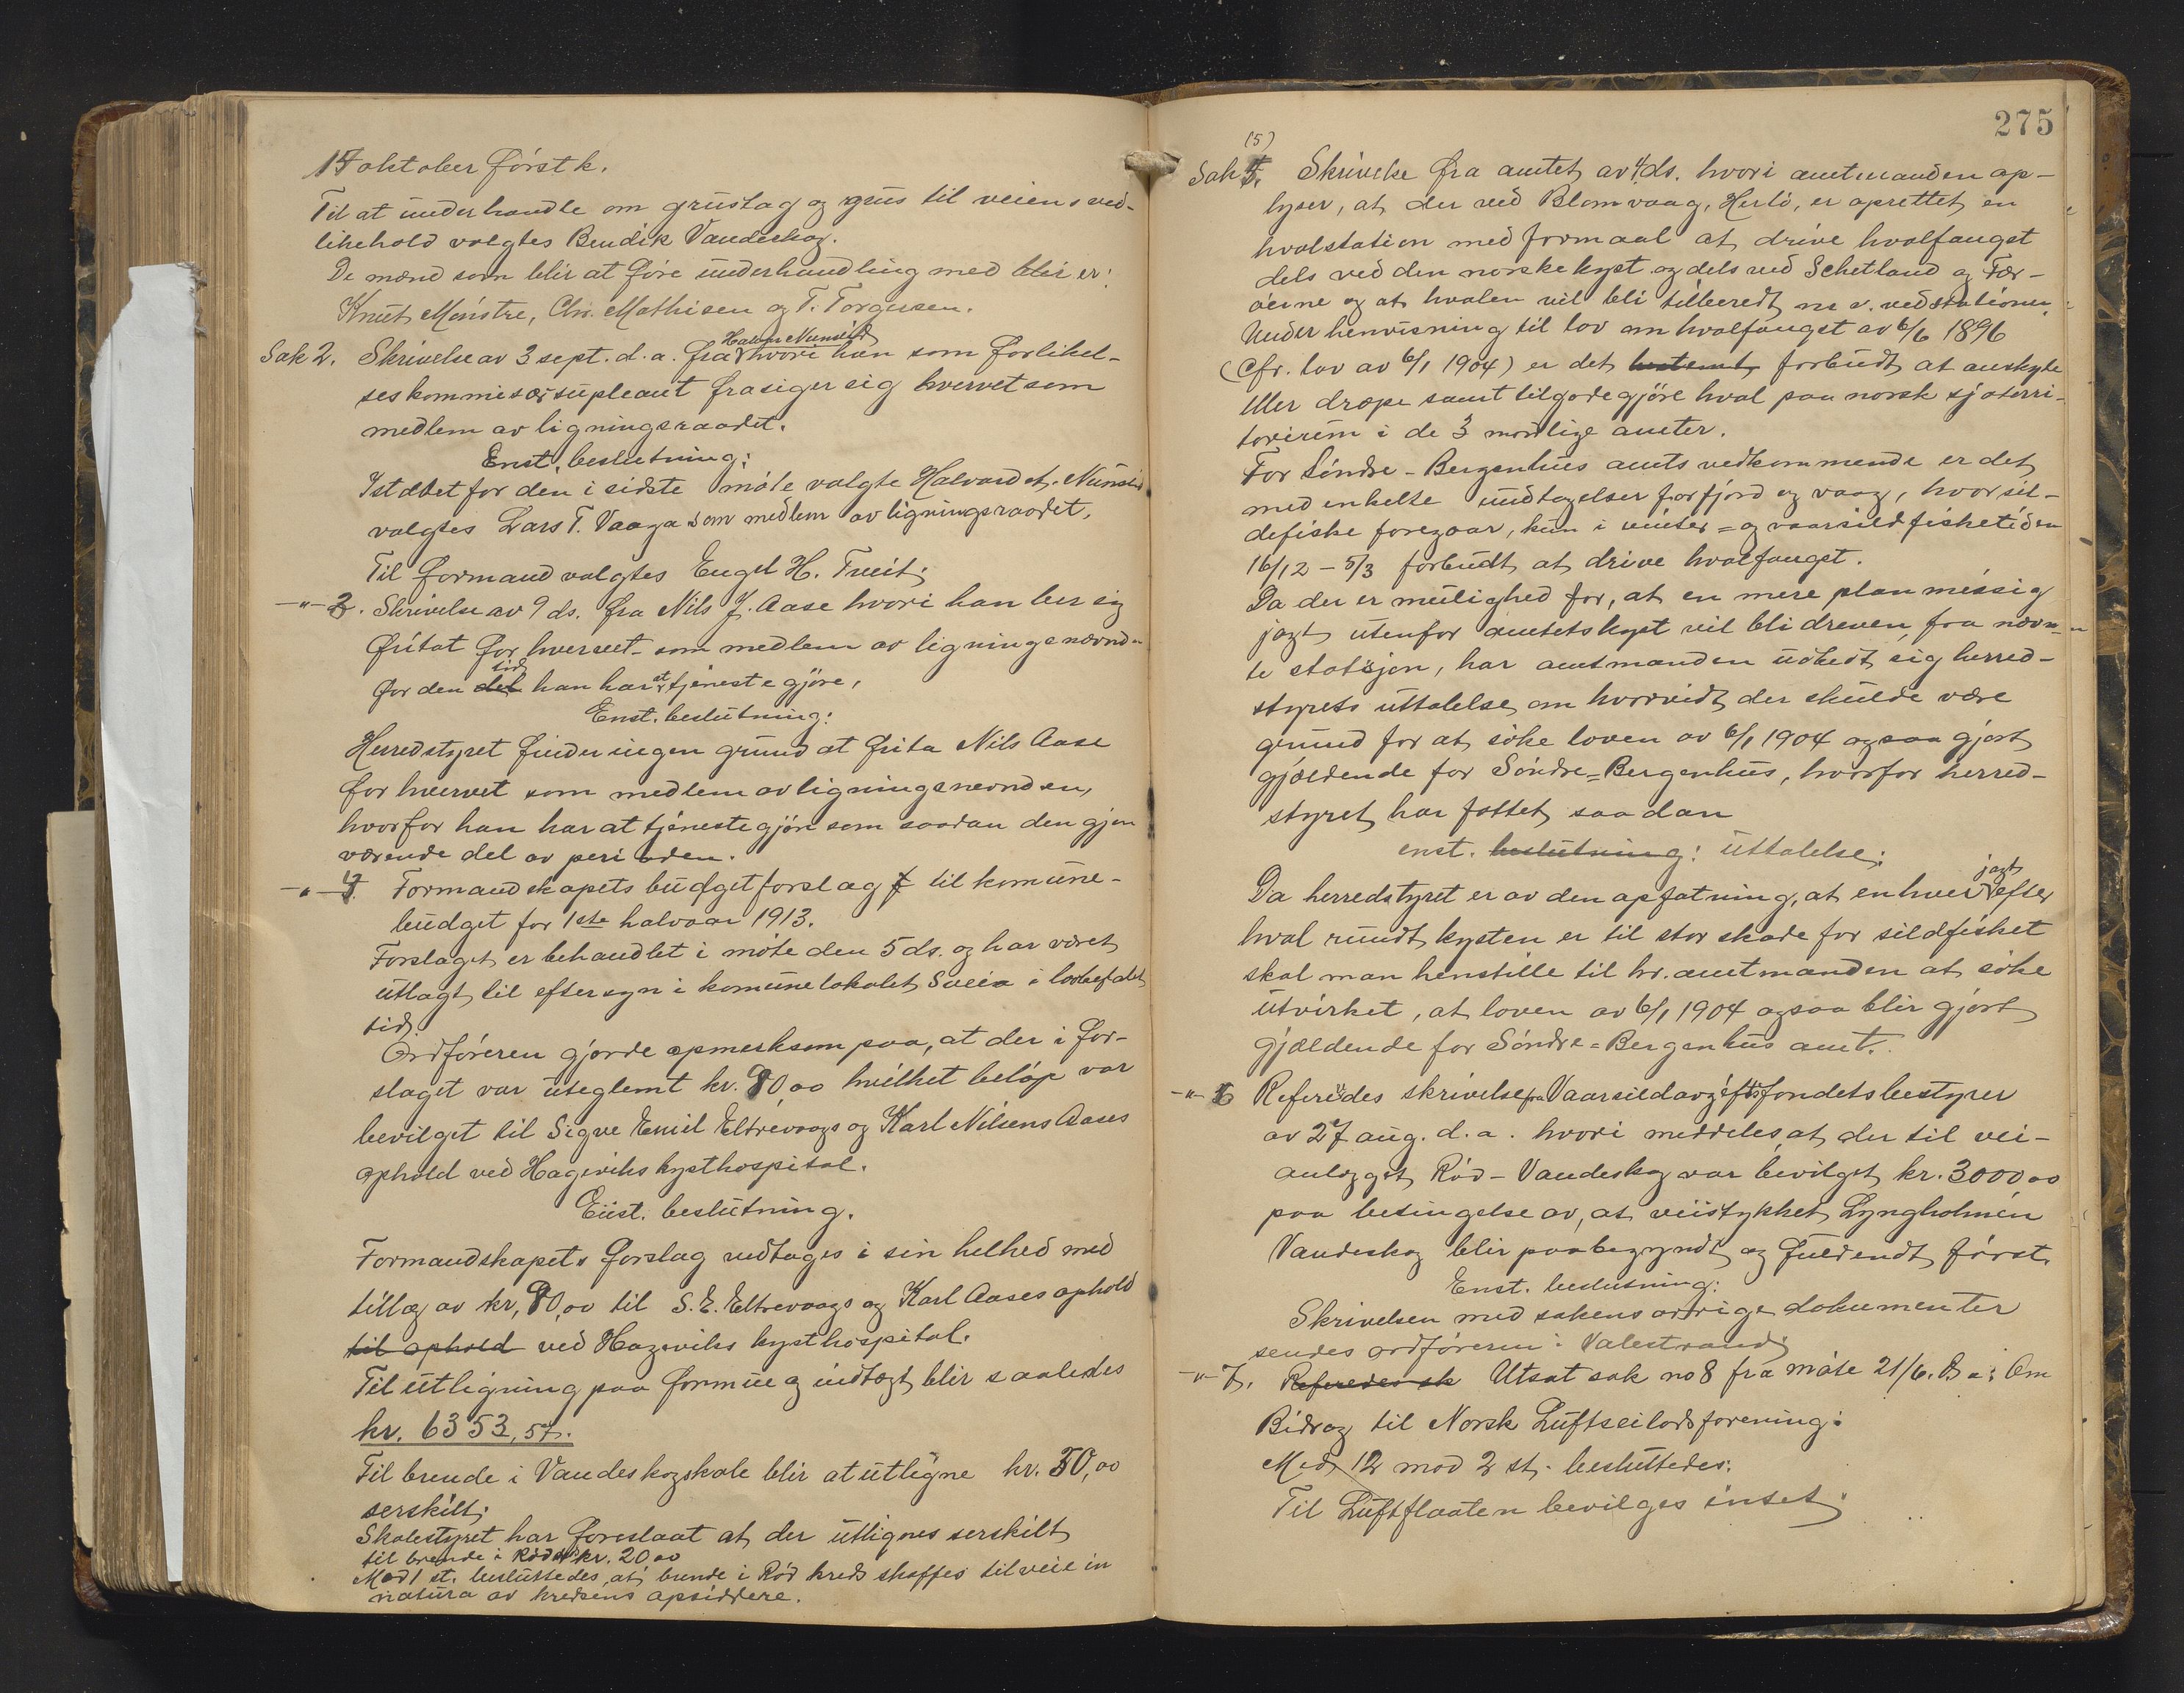 14 oktober förstk.
Til at underhandle om grustag og grus til veiens ved-
likehold valgtes Bendik Vandeskog.
De mænd som blir at före underhandling med blir er:
Knut Mönstre, Chr. Mathisen og T. Torgersen.
Sak 2. Skrivelse av 3 sept. d.a. fra Halvor Nernes hvori han som forlikel-
seskommisærsupleant frasiger sig hvervet som
medlem av ligningsraadet.
Enst. beslutning:
Istedet for den i sidste möte valgte Halvard
valgtes Lars T. Vaaga som medlem av ligningsraadet.
Til formand valgtes Engel H. Tveit.
-"- 3. Skrivelse av 9 ds. fra Nils J. Aase hvori han ber sig
fritat for hvervet som medlem av ligningsnevnden
for den del tid han har at tjenestegjöre.
Enst. beslutning:
Herredstyret finder ingen grund at frita Nils Aase
for hvervet som medlem av ligningsnevnden,
hvorfor han har at tjenestegjöre som saadan den gjen
værende del av perioden.
-"- 4 Formandskapets budgetforslag til komune-
budget for 1ste halvaar 1913.
Forslaget er behandlet i möte den 5 ds. og har været
utlagt til eftersyn i komunelokalet Sveio i lovbefalet
tid.
Ordföreren gjorde opmerksom paa, at der i for-
slaget var uteglemt kr. 80,00 hvilket belöp var
bevilget til Sigve Emil Eltrevaags og Karl Nilsens Aases
ophold ved Hageviks kysthospital.
Enst. beslutning.
Formandskapets forslag vedtages i sin helhed med
tillæg av kr. 80,00 til S. E. Eltrevaags og Karl Aases ophold
til ophold ved Hageviks kysthospital.
Til utligning paa formue og indtægt blir saaledes
kr. 6353,57.
Til brende i Vandeskogskole blir at utligne kr. 50,00
serskilt.
Skolestyret har foreslaat at der utlignes serskilt
til brende i Röd kr. 20 00
Mod 1 st. besluttedes, at brende i Röd kreds skaffes tilveie in
natura av kredsens opsiddere.
275
(5)
Sak 5. Skrivelse fra amtet av 4 ds. hvori amtmanden op-
lyser, at der ved Blomvaag, Herlö, er oprettet en
hvalstation med formaal at drive hvalfangst
dels ved den norske kyst og dels ved Schetland og Fær-
öerne og at hvalen vil bli tilberedt m. v. ved stationen.
Under henvisning til lov om hvalfangst av 6/6 1896
(Cfr. lov av 6/1 1904) er det bestemt forbudt at anskyte
eller dræpe samt tilgodegjöre hval paa norsk sjöterri-
torirum i de 3 nordlige amter.
For Söndre-Bergenhus amts vedkommende er det
med enkelte undtagelser for fjord og vaag, hvor sil-
defiske foregaar, kun i vinter- og vaarsildfisketiden
16/12 - 5/3 forbudt at drive hvalfangst.
Da der er mulighed for, at en mere planmessig
jagt utenfor amtets kyst vil bli dreven fra nævn-
te statsjon, har amtmanden udbedt sig herred-
styrets uttalelse om hvorvidt der skulde være
grund for at söke loven av 6/1 1904 ogsaa gjort
gjældende for Söndre-Bergenhus, hvorfor herred-
styret har fattet saadan
enst. beslutning: uttalelse:
Da herredstyret er av den opfatning, at enhver jagt efter
hval rundt kysten er til stor skade for sildfisket
skal man henstille til hr. amtmanden at söke
utvirket, at loven av 6/1 1904 ogsaa blir gjort
gjældende for Söndre-Bergenhus amt.
-"- 6 Referedes skrivelse fra Vaarsildavgiftsfondets bestyrer
av 27 aug. d.a. hvori meddeles, at der til vei-
anlægget Röd - Vandeskog var bevilget kr. 3000 00
paa betingelse av, at veistykket Lyngholmen
Vandeskog blir paabegyndt og fuldendt först.
Enst. beslutning:
Skrivelsen med sakens övrige dokumenter
sendes ordföreren i Valestrand.
-"- 7. Referedes sk Utsat sak no 8 fra möte 21/6. d a: Om
Bidrag til Norsk Luftseiladsforening:
Med 12 mod 2 st. besluttedes:
Til Luftflaaten bevilges intet.